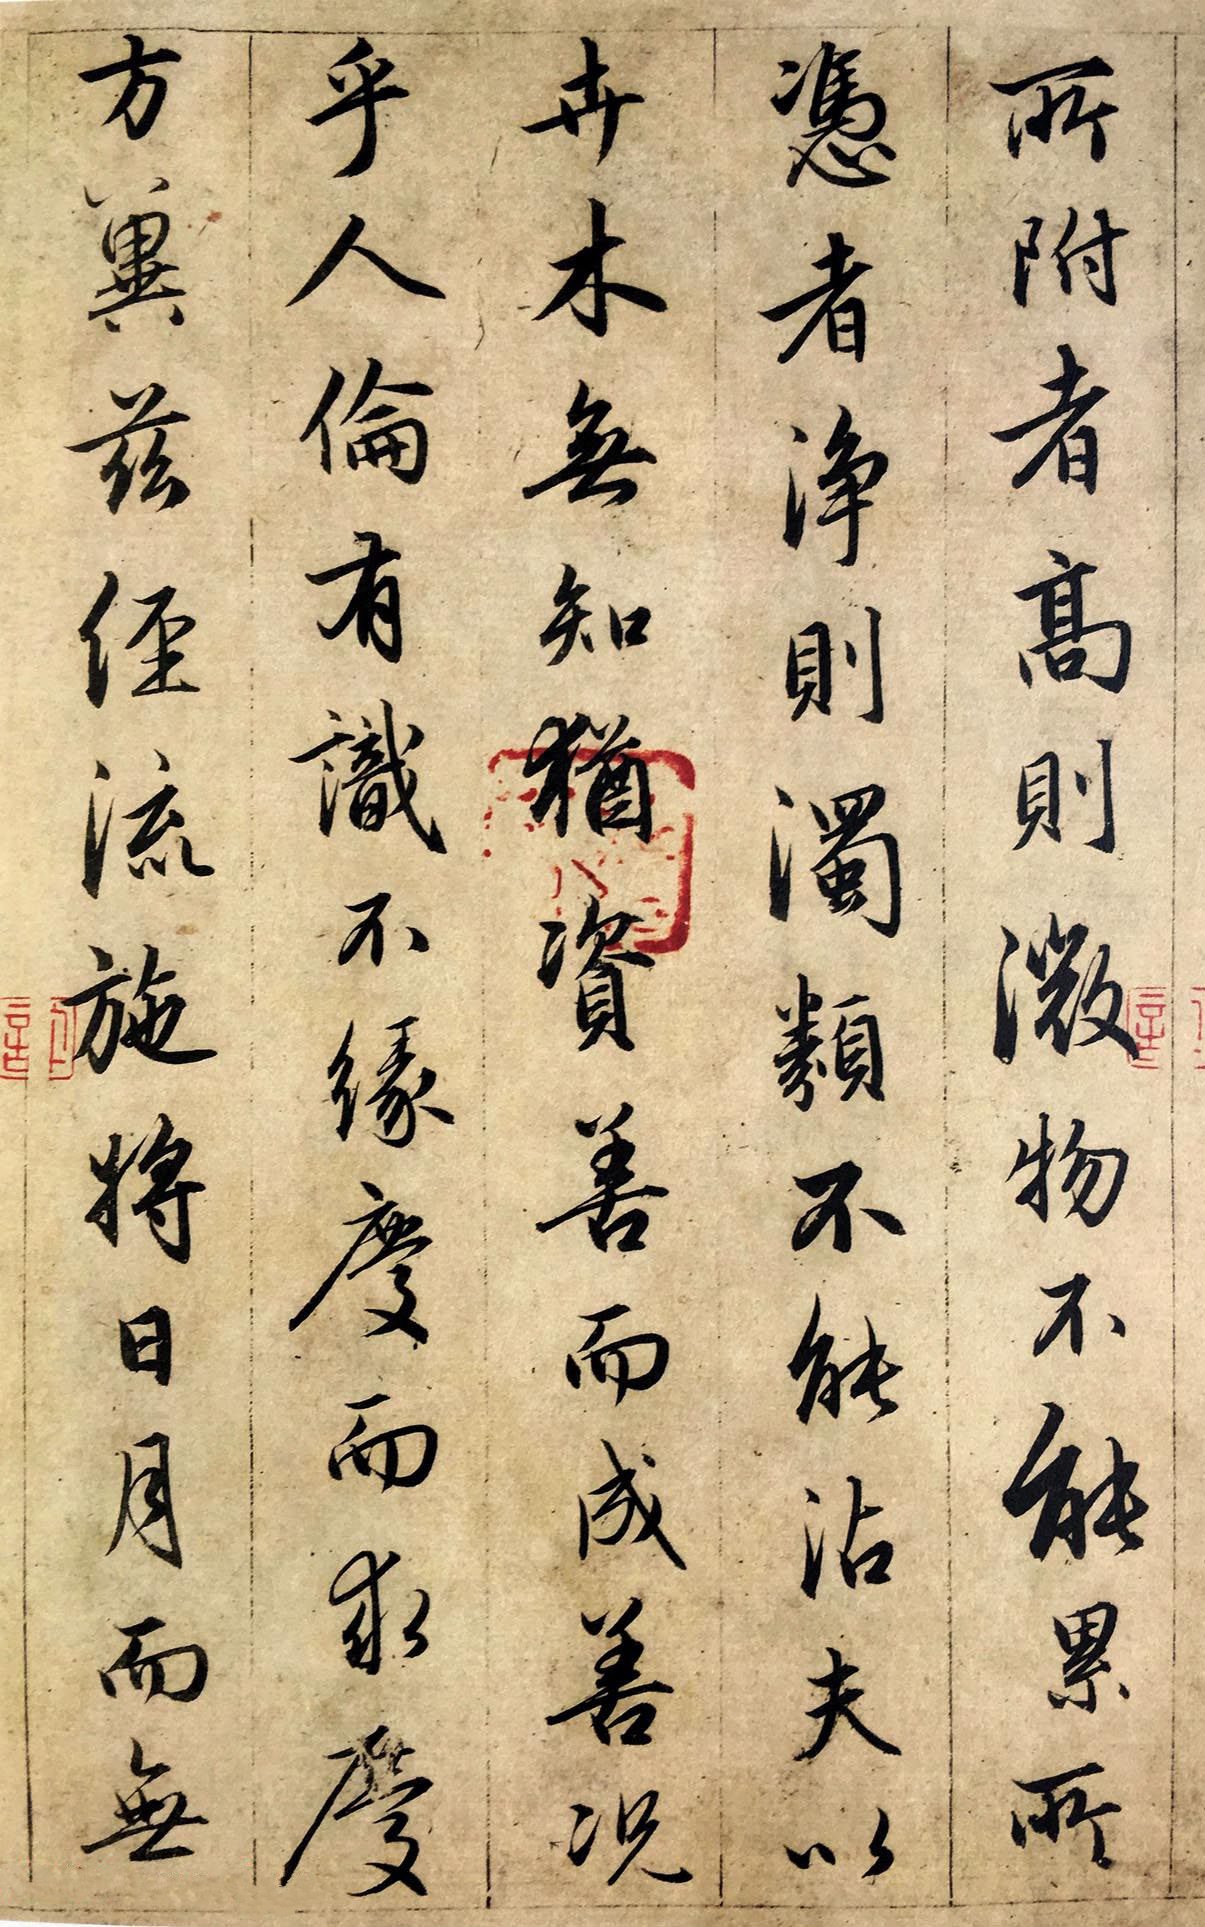 所附者高則濊物不能累所
憑者淨則濁類不能沾夫以
卉木無知猶資善而成善況
乎人倫有識不緣慶而求慶
方冀茲經流施將日月而無